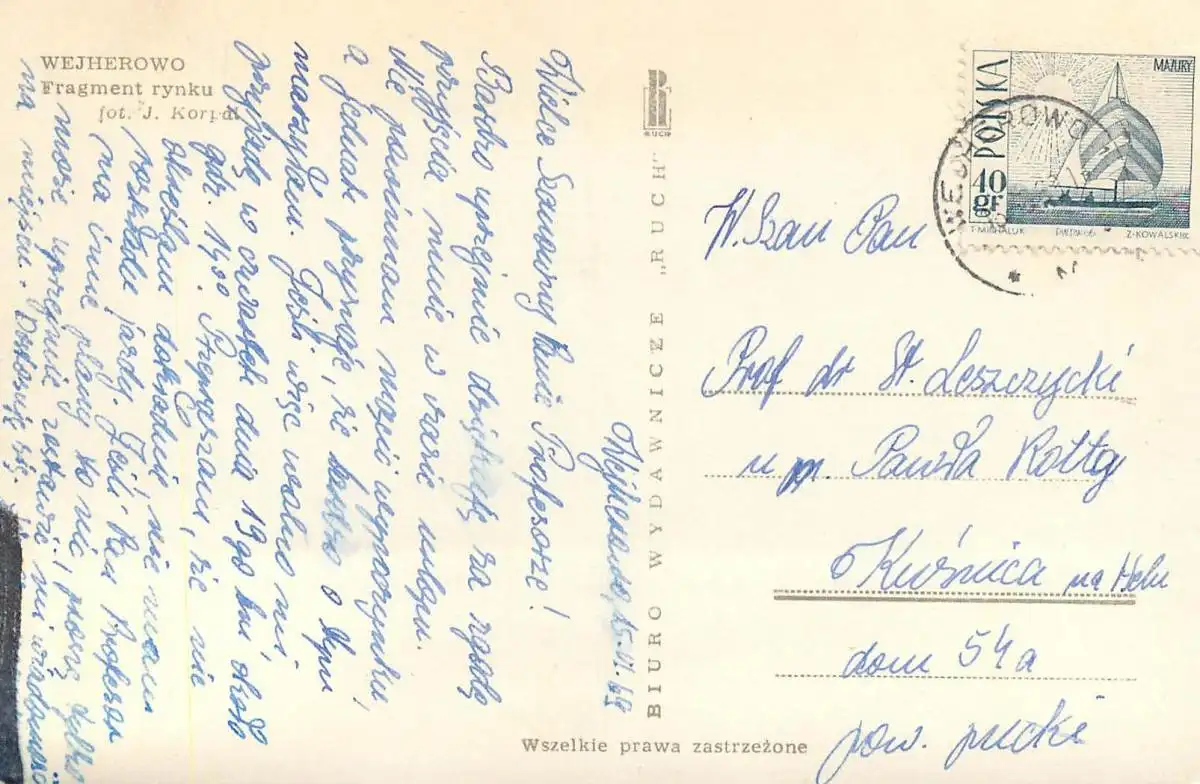 WEJHEROWO
Fragment rynku
fot. J. Korpal
Wejherowo, 15.VI.68
Wielce Szanowny Panie Profesorze!
Bardzo uprzejmie dziękuję za zgodę
przyjęcia mnie w czasie urlopu.
Nie powinnam mącić wypoczynku,
a jednak przyznaję, że
maszyję. Jeśli więc wolno mi
przyjadę w czwartek dnia 19go bm około
godz. 1900. Przepraszam, że nie
określam dokładnie, nie mam
rozkładu jazdy. Jeśli Pan Profesor
ma inne plany to nic, proszę tylko
może uprzejmie zostawić mi wiadomość
na miejscu. Dostosuję się.
BIURO WYDAWNICZE „RUCH"
RUCH
Wszelkie prawa zastrzeżone
POLSKA
MAZURY
40 gr
T. MICHALUK PWPW-66 Z. KOWALSKI
WEJHEROWO
W. Szan Pan
Prof dr St. Leszczycki
u p. Pawła Kotta
Kuźnica na Helu
dom 54a
pow. pucki